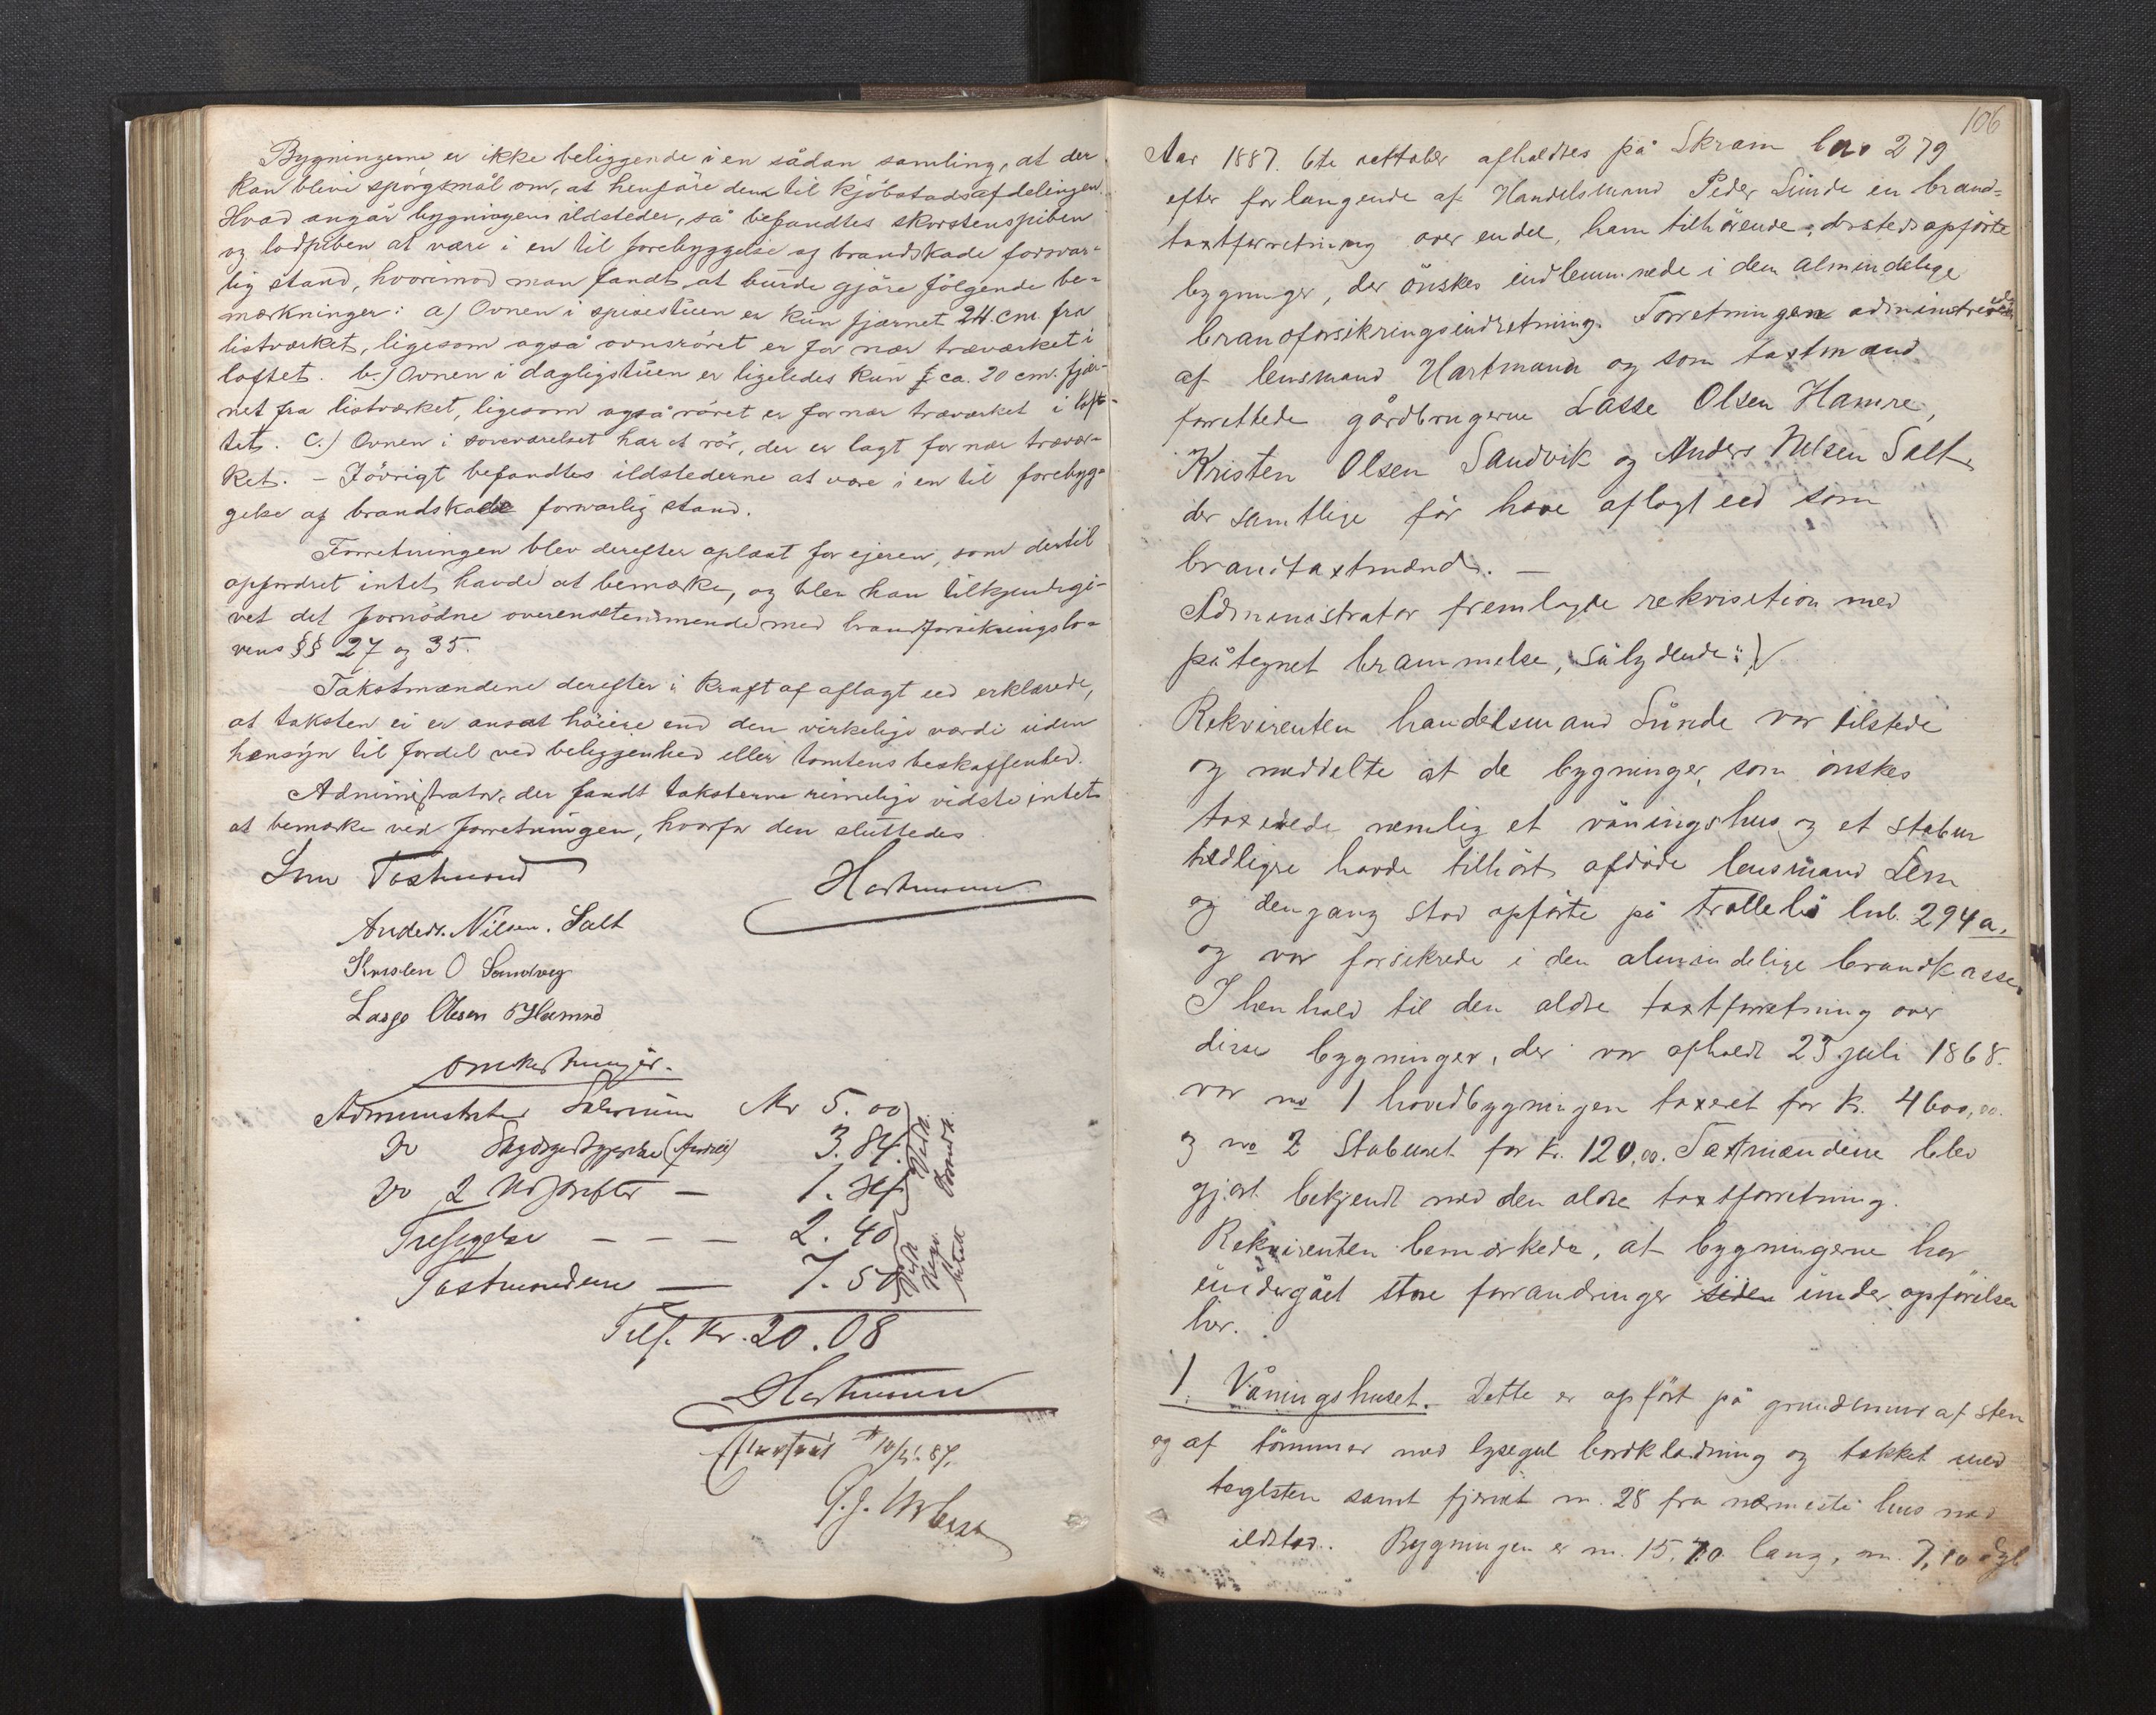 Bygningerne er ikke beliggende i en sådan samling, at der
kan blive spörgsmål om, at henföre dem til kjöbstadsafdelingen.
Hvad angår bygningens ildsteder, så befandtes skorstenspiben
og lodpiben at være i en til forebyggelse af brandskade forsvar=
lig stand, hvorimod man fandt, at burde gjöre fölgende be=
mærkninger: a) Ovnen i spisestuen er kun fjærnet 24. cm. fra
listværket, ligesom også ovnsröret er for nær træværket i
loftet. b.) Ovnen i dagligstuen er ligeledes kun ca. 20 cm. fjær-
net fra listværket, ligesom også röret er for nær træværket i lof-
tet. c.) Ovnen i soveværelset har et rör, der er lagt for nær trævær-
ket. - Iövrigt befandtes ildstederne at være i en til forebyg-
gelse af brandskade forsvarlig stand.
Forretningen blev derefter oplæst for ejeren, som dertil
opfordret intet havde at bemærke, og blev han tilkjendegi-
vet det fornödne overenstemmende med brandforsikringslo-
vens §§ 27 og 35.
Takstmændene derefter i kraft af aflagt eed erklærede,
at taksten ei er ansat höiere end den virkelige værdi uden
hensyn til fordel ved beliggenhed eller tomtens beskaffenhed.
Administrator, der fandt taksterne rimelige vidste intet
at bemærke ved forretningen, hvorfor den sluttedes
Som Taxtmænd
Hartmann
Anders. Nilsen. Salt
Kristen O Sandvig
Lasse Olsen Hamre
Omkostninger.
Administrator Salærium Kr 5.00
Do Skydsgodtgjørelse 3.84
Do 2 Udskrifter - 1.34
Treseyelse - - - 2.40
Taxtmændene - 7.50
Tils. Kr. 20.08
Hartmann
106
Aar 1887. 6te oktober afholdtes på Skram lno 279
efter forlangende af Handelsmand Peder Sunde en brand=
taxtforretning over endel, ham tilhörende, dersteds opförte
bygninger, der önskes indlemmede i den almindelige
brandforsikringsindretning. Forretningen administreredes
af lensmand Hartmann og som taxtmænd
forrettede gårdbrugerne Lasse Olsen Hamre,
Kristen Olsen Sandvik og Anders Nilsen Salt,
der samtlige för have aflagt eed som
brandtaxtmænd. -
Administrator fremlagde rekvisition med
påtegnet berammelse, sålydende:
Rekvirenten handelsmand Sunde var tilstede
og meddelte at de bygninger, som önskes
taxerede nemlig et våningshus og et stabur
tidligere havde tilhört afdöde lensmand Lem
og dengang stod opförte på Trollebö lnb. 294a,
og var forsikrede i den almindelige brandkasse.
I henhold til den ældre taxtforretning over
disse bygninger, der var afholdt 23 juli 1868.
var no 1 hovedbygningen taxeret for K. 4600,00.
og no 2 Staburet for K. 120,00. Taxtmændene blev
gjort bekjendt med den ældre taxtforretning.
Rekvirenten bemærkede, at bygningerne har
undergået store forandringer siden under opförelsen
her.
1. Våningshuset. Dette er opfört på grundmur af sten
og af tömmer med lysegul bordklædning og tækket med
taglsten samt fjernet m. 28 fra nærmeste hus med
ildsted. Bygningen er m. 15,70 lang, m. 7,10 dyb